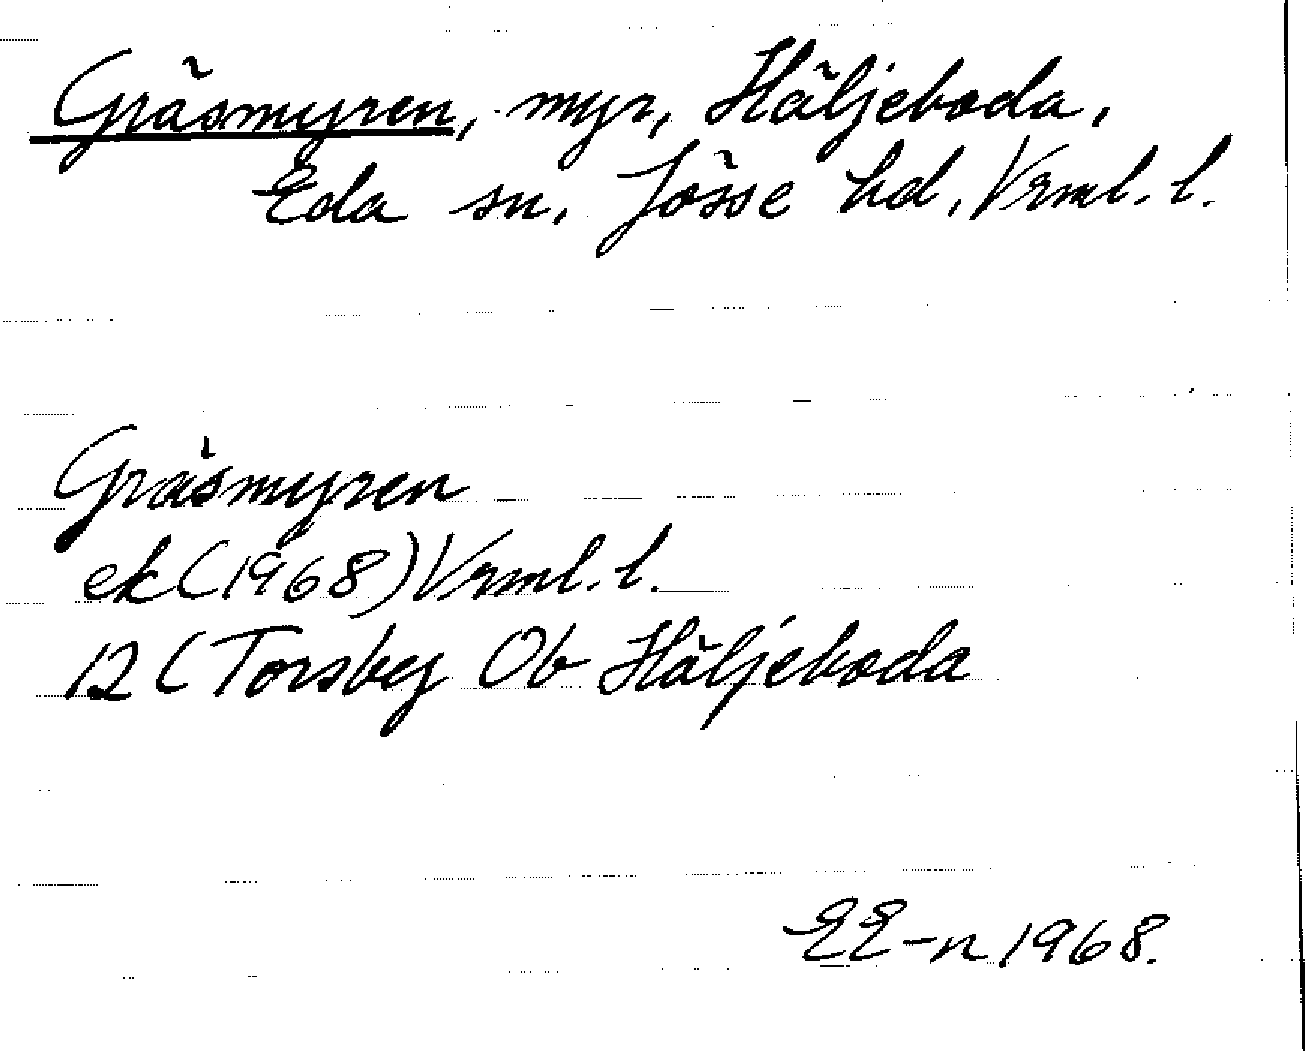 Gräsmyren, myr, Häljeboda,
Eda sn, Jösse hd, Vrml. l.
Gräsmyren
ek (1968) Vrml. l.
12 (Torsbeg Ob Häljeboda
EE-n 1968.